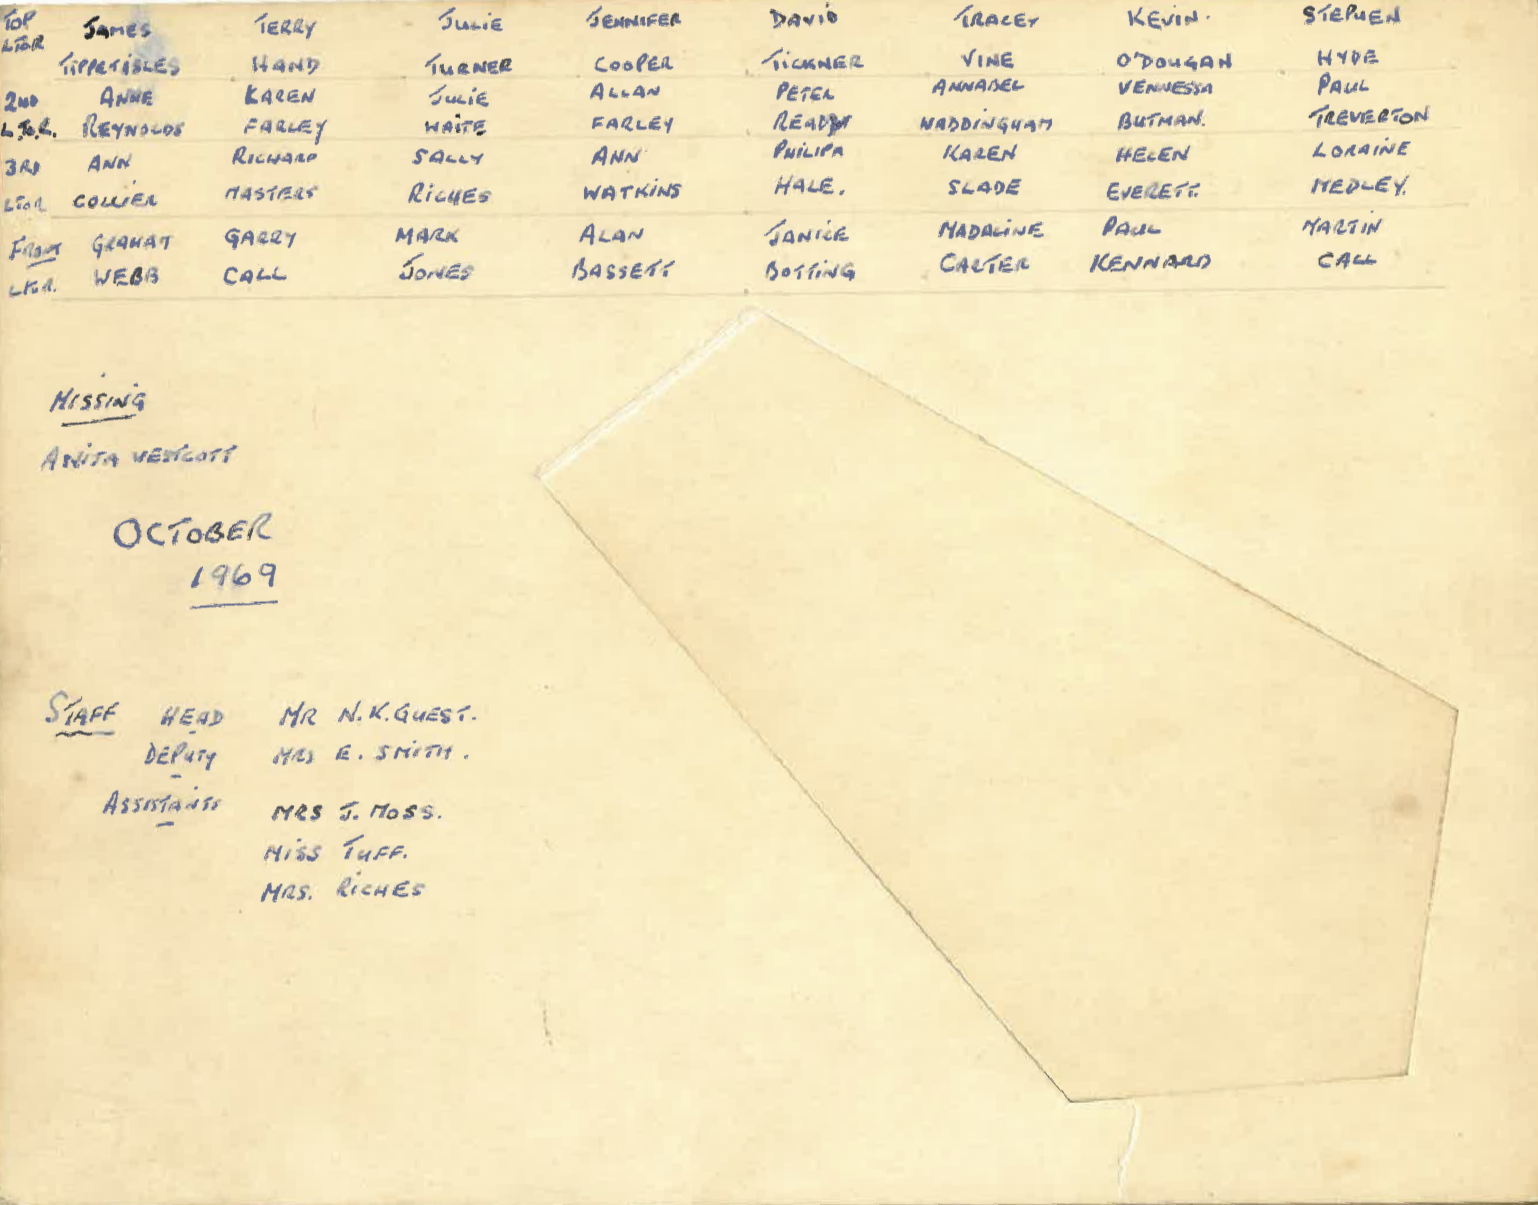 TOP JAMES TERRY JULIE JENNIFER DAVID TRACEY KEVIN. STEPHEN
LTOR TIPPETISLES HAND TURNER COOPER TICKNER VINE O'DOUGAN HYDE
2ND ANNE KAREN JULIE ALLAN PETER ANNABEL VENNESSA PAUL
L.To.R. REYNOLDS FARLEY WAITE FARLEY READ NADDINGHAM BUTMAN. TREVERTON
3RD ANN RICHARD SALLY ANN PHILIPA KAREN HELEN LORAINE
LTOR COLLIER MASTERS RICHES WATKINS HALE. SLADE EVERETT. MEDLEY.
FRONT GRAHAM GARRY MARK ALAN JANICE MADALINE PAUL MARTIN
LTOR. WEBB CALL JONES BASSETT BOTTING CARTER KENNARD CALL
MISSING
ANITA WESTCOTT
OCTOBER
1969
STAFF HEAD MR N.K.GUEST.
DEPUTY MRS E. SMITH.
ASSISTANTS MRS J. MOSS.
MISS TUFF.
MRS. RICHES